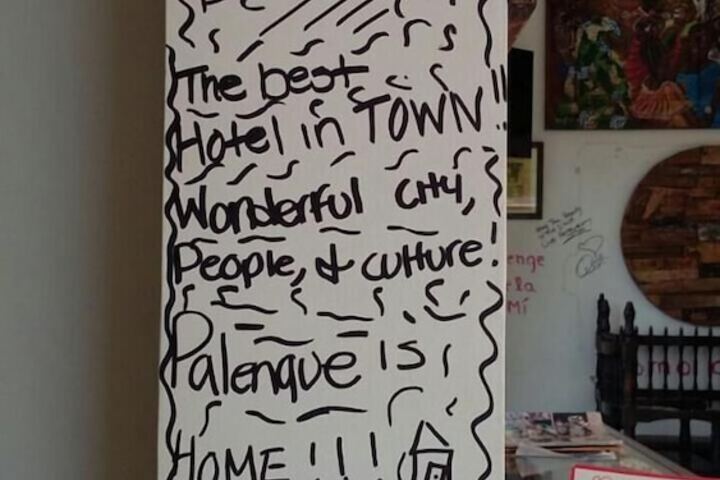 The best
Hotel in TOWN!!
Wonderful city,
People, & culture!
Palenque is
HOME!!!
enge
la
MÍ